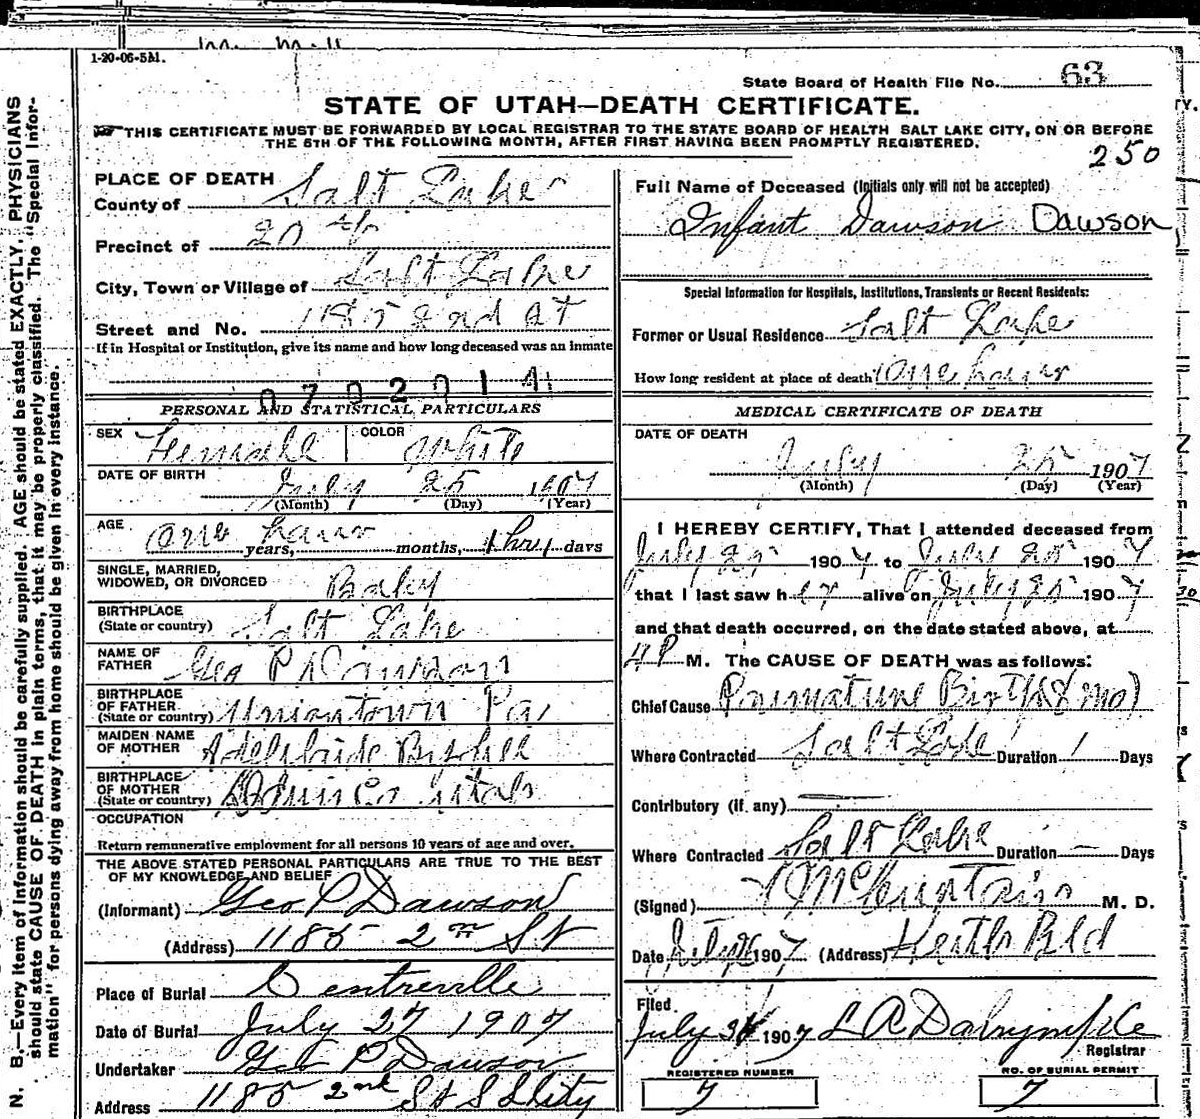 1-20-06-5M.
State Board of Health File No. 63
STATE OF UTAH—DEATH CERTIFICATE.
THIS CERTIFICATE MUST BE FORWARDED BY LOCAL REGISTRAR TO THE STATE BOARD OF HEALTH SALT LAKE CITY, ON OR BEFORE
THE 5TH OF THE FOLLOWING MONTH, AFTER FIRST HAVING BEEN PROMPTLY REGISTERED.
250
PLACE OF DEATH
County of Salt Lake
Precinct of 20th
City, Town or Village of Salt Lake
Street and No. 1185 2nd St
If in Hospital or Institution, give its name and how long deceased was an inmate
0702014
PERSONAL AND STATISTICAL PARTICULARS
SEX Femall COLOR White
DATE OF BIRTH July 25 1907
(Month) (Day) (Year)
AGE one hour years, months, 1 hr days
SINGLE, MARRIED,
WIDOWED, OR DIVORCED Baby
BIRTHPLACE
(State or country) Salt Lake
NAME OF
FATHER Geo P Dawson
BIRTHPLACE
OF FATHER
(State or country) Uniontown Pa
MAIDEN NAME
OF MOTHER
BIRTHPLACE
OF MOTHER
(State or country) Utah
OCCUPATION
Return remunerative employment for all persons 10 years of age and over.
THE ABOVE STATED PERSONAL PARTICULARS ARE TRUE TO THE BEST
OF MY KNOWLEDGE AND BELIEF
(Informant) Geo P Dawson
(Address) 1185 2nd St
Place of Burial Centreville
Date of Burial July 27 1907
Undertaker Geo P Dawson
Address 1185 2nd St S L City
Full Name of Deceased (Initials only will not be accepted)
Infant Dawson Dawson
Special Information for Hospitals, Institutions, Transients or Recent Residents:
Former or Usual Residence Salt Lake
How long resident at place of death one hour
MEDICAL CERTIFICATE OF DEATH
DATE OF DEATH
July 25 1907
(Month) (Day) (Year)
I HEREBY CERTIFY, That I attended deceased from
July 25 1907 to July 25 1907
that I last saw her alive on July 25 1907
and that death occurred, on the date stated above, at
4 P M. The CAUSE OF DEATH was as follows:
Chief Cause Premature Birth (8 mo)
Where Contracted Salt Lake Duration 1 Days
Contributory (if any)
Where Contracted Salt Lake Duration — Days
(Signed) M. D.
Date July 26 1907 (Address) Keith Bld
Filed
July 1907 L A Dalrymple
Registrar
REGISTERED NUMBER
7
NO. OF BURIAL PERMIT
7
N. B.—Every item of information should be carefully supplied. AGE should be stated EXACTLY. PHYSICIANS
should state CAUSE OF DEATH in plain terms, that it may be properly classified. The "Special Infor-
mation" for persons dying away from home should be given in every instance.